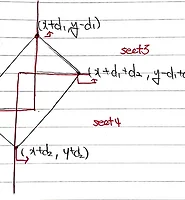 (x+d₁, y-d₁)
sect3
(x+d₁+d₂, y-d₁+
sect4
(x+d₂, y+d₂)